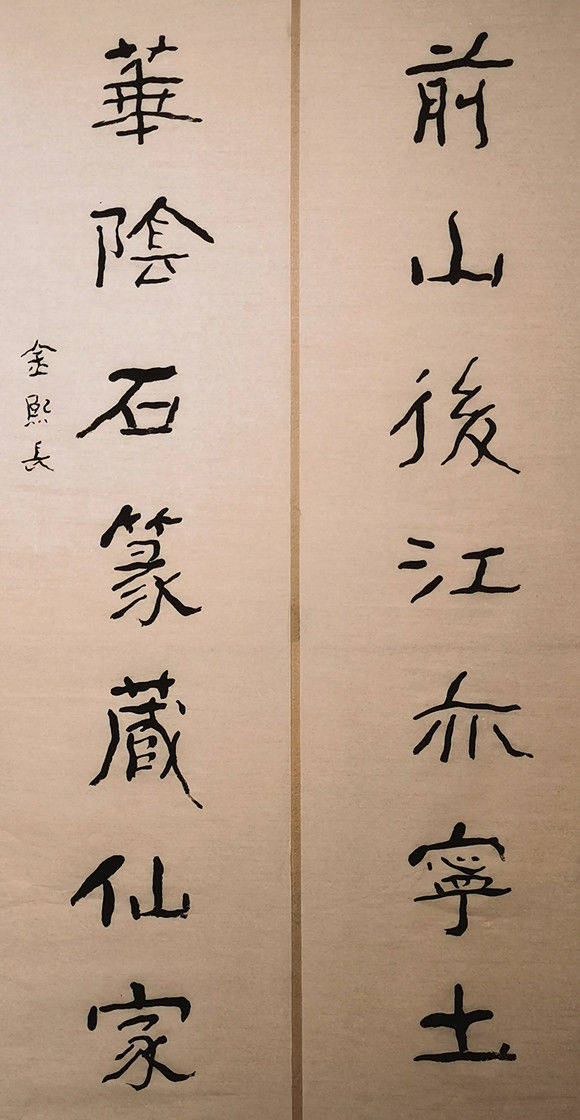 前山後江亦寧土
華陰石篆蔵仙家
金熙長